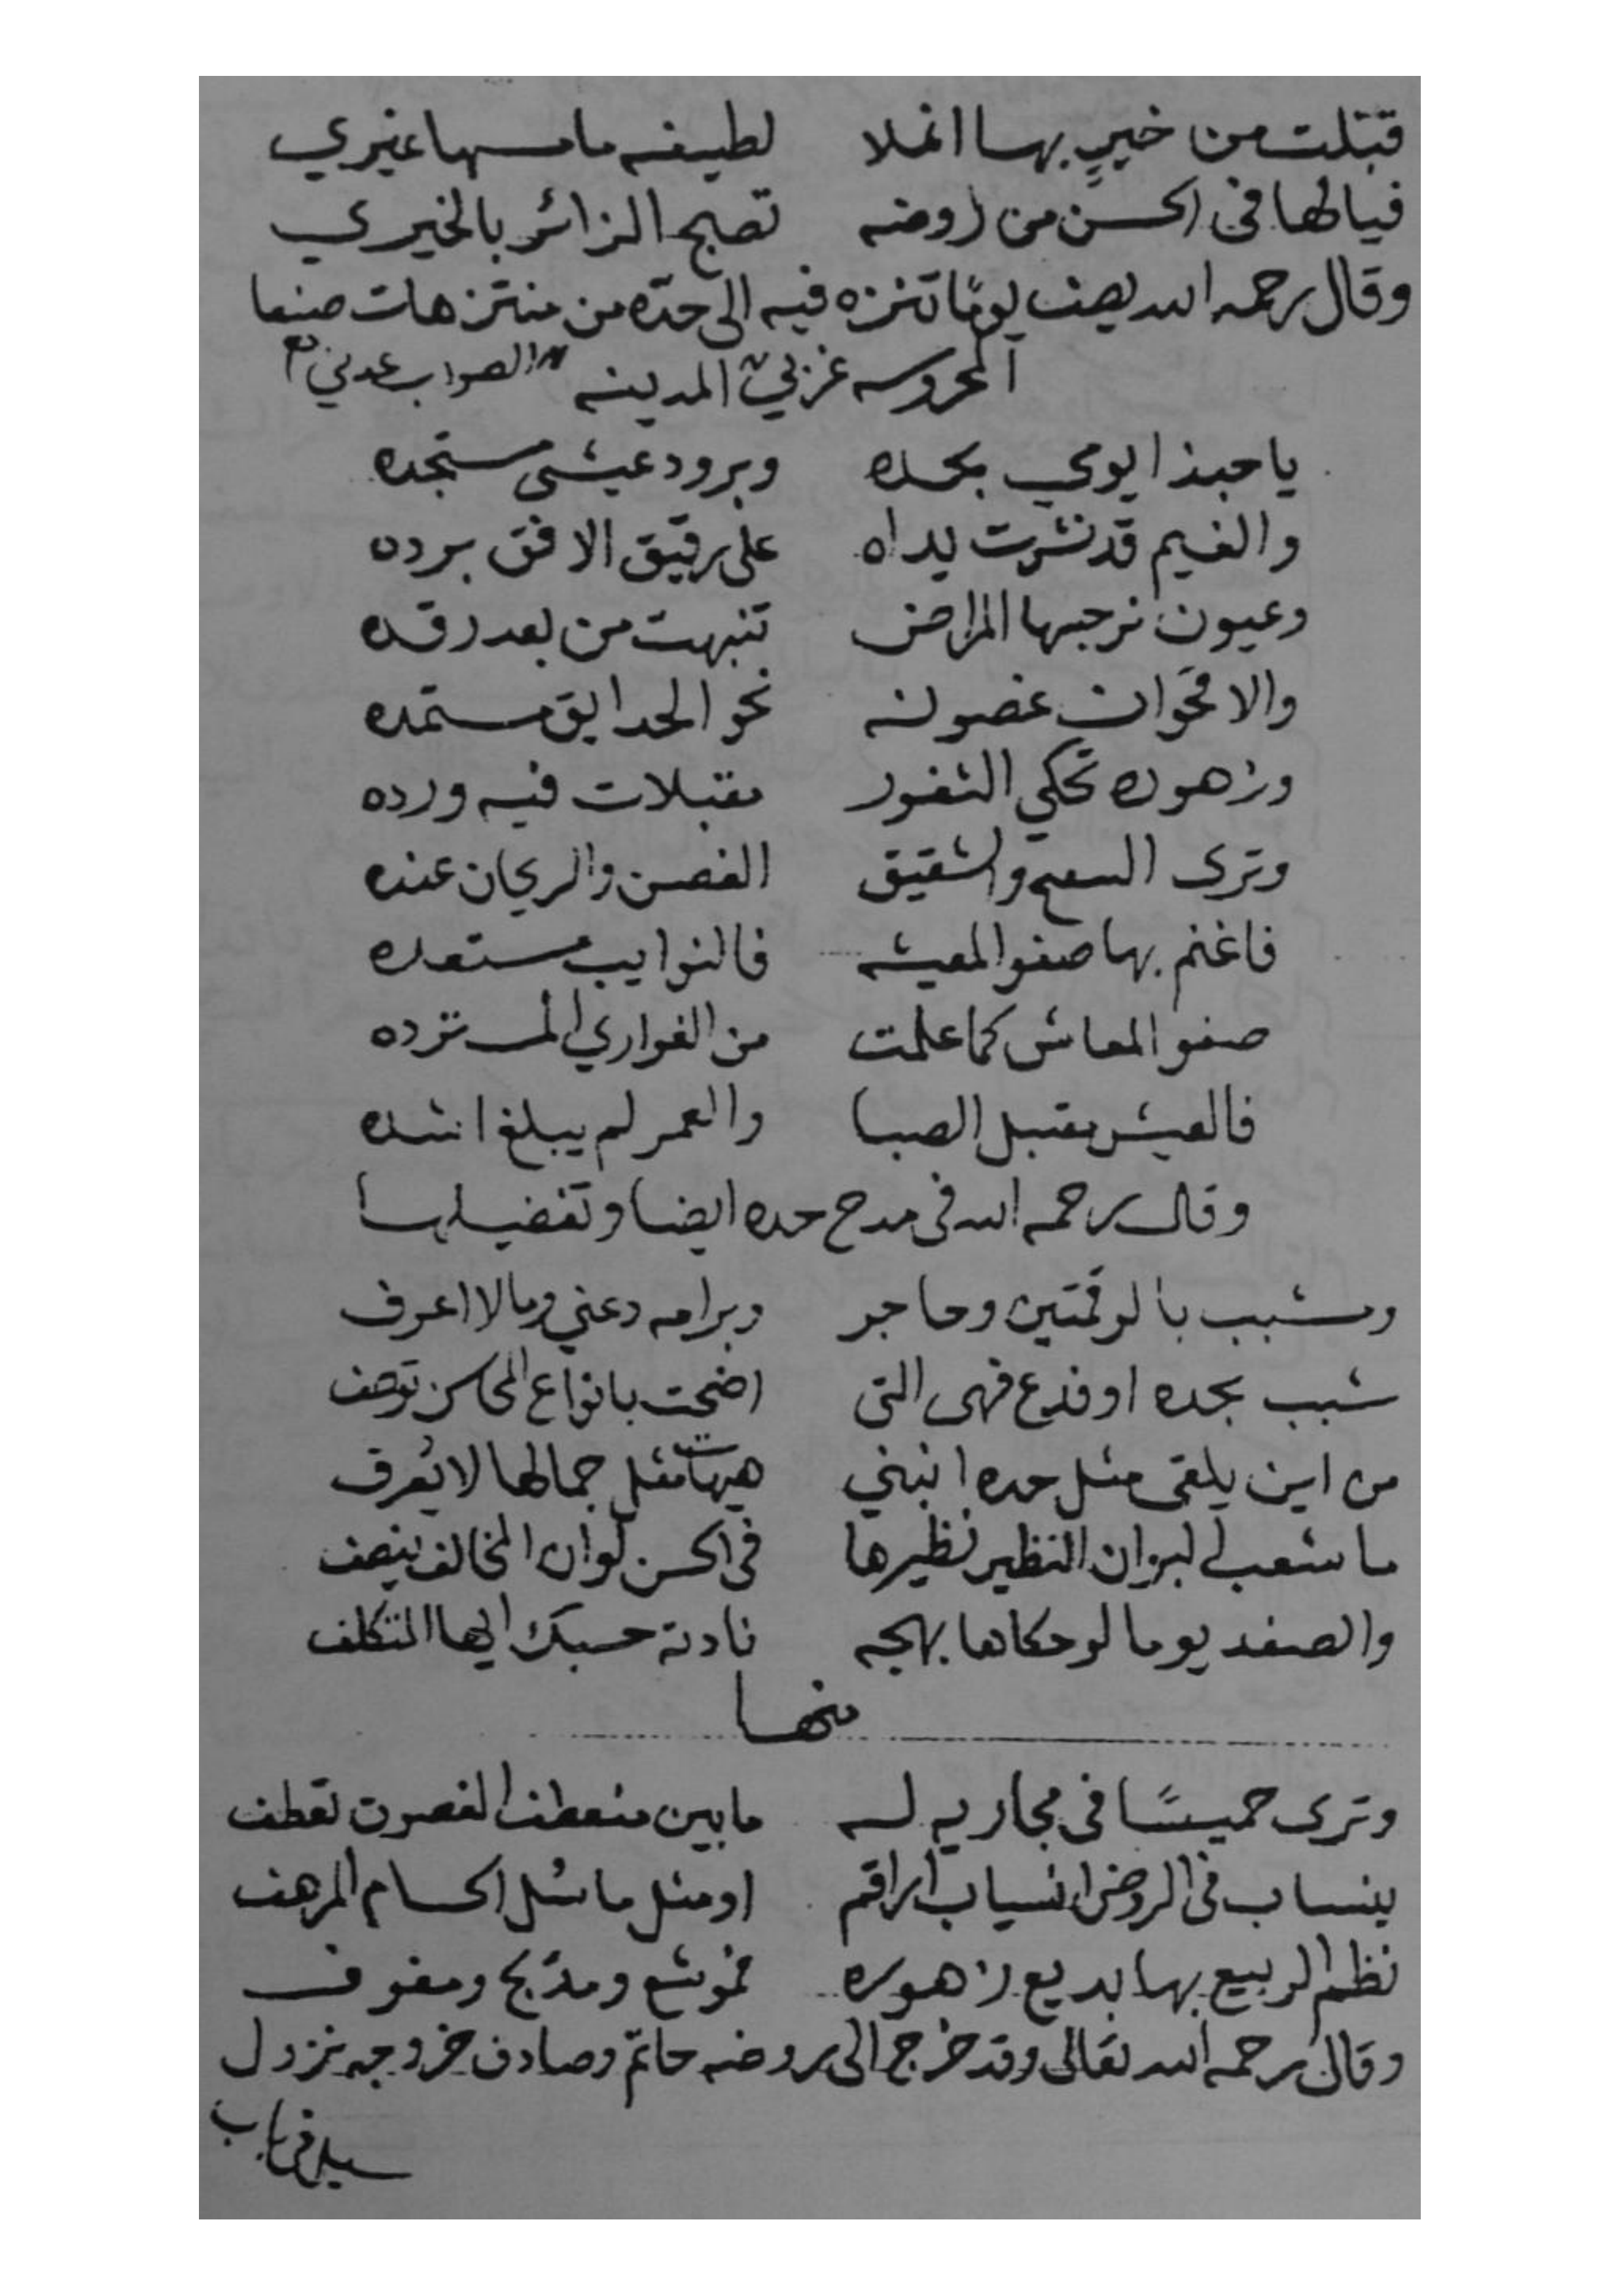 قبّلت من خيرٍ بها انملا لطيفه ما مسها غيري
فيالها في الحسن من روضه تصبح الزائر بالخيري
وقال رحمه الله يصف يومًا تنزه فيه الى حدّه من منتزهات صنعا
المحروسه غربيّ المدينه الصواب عدني
يا حبذا يومي بحده وبرود عيشى مستجده
والغيم قد نشرت يداه على رقيق الافق برده
وعيون نرجسها المراض تنبهت من بعد رقده
والاقحوان غصونه نحو الحدايق مستمده
وزهوره تحكي الثغور مقبلات فيه ورده
وترى السفح والشقيق الغصن والريحان عنده
فاغنم بها صفو المعيشه فالنوايب مستعده
صفو المعاش كما علمت من العواري المسترده
فالعيش مقتبل الصبا والعمر لم يبلغ اشده
وقال رحمه الله في مدح حده ايضا وتفضيلها
ومشبب بالرقمتين وحاجر وبرامه دعني وما لا اعرف
شبب بحده او فدع فهى التى اضحت بانواع المحاسن توصف
من اين يلقى مثل حده انبني هيهات مثل جمالها لا يُعرف
ما شعب لبوان النظير نظيرها في الحسن لو ان المخالف ينصف
والصغد يوما لو حكاها بهجه نادته حسبك ايها المتكلف
منها
وترى حميسًا في مجاريه له ما بين منعطف الغصون تعطف
ينساب في الروض انسياب اراقم او مثل ما سُل الحسام المرهف
نظم الربيع بها بديع زهوره فموشع ومدّبج ومفوف
وقال رحمه الله تعالى وقد خرج الى روضه حاتم وصادف خروجه نزول